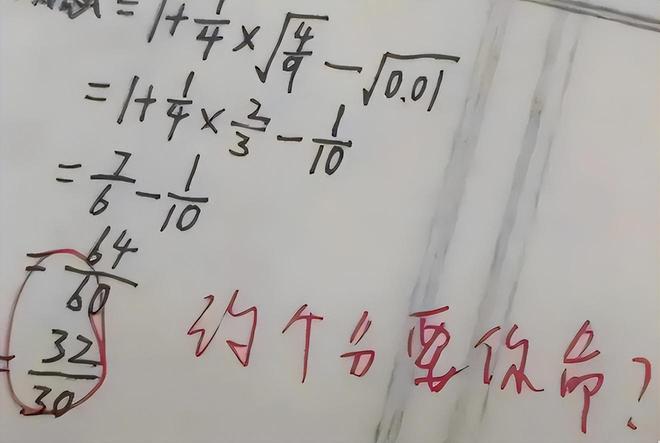 = 1 + 1/4 × √(4/9) − √0.01
= 1 + 1/4 × 2/3 − 1/10
= 7/6 − 1/10
= 64/60
= 32/30
约个分要你命?